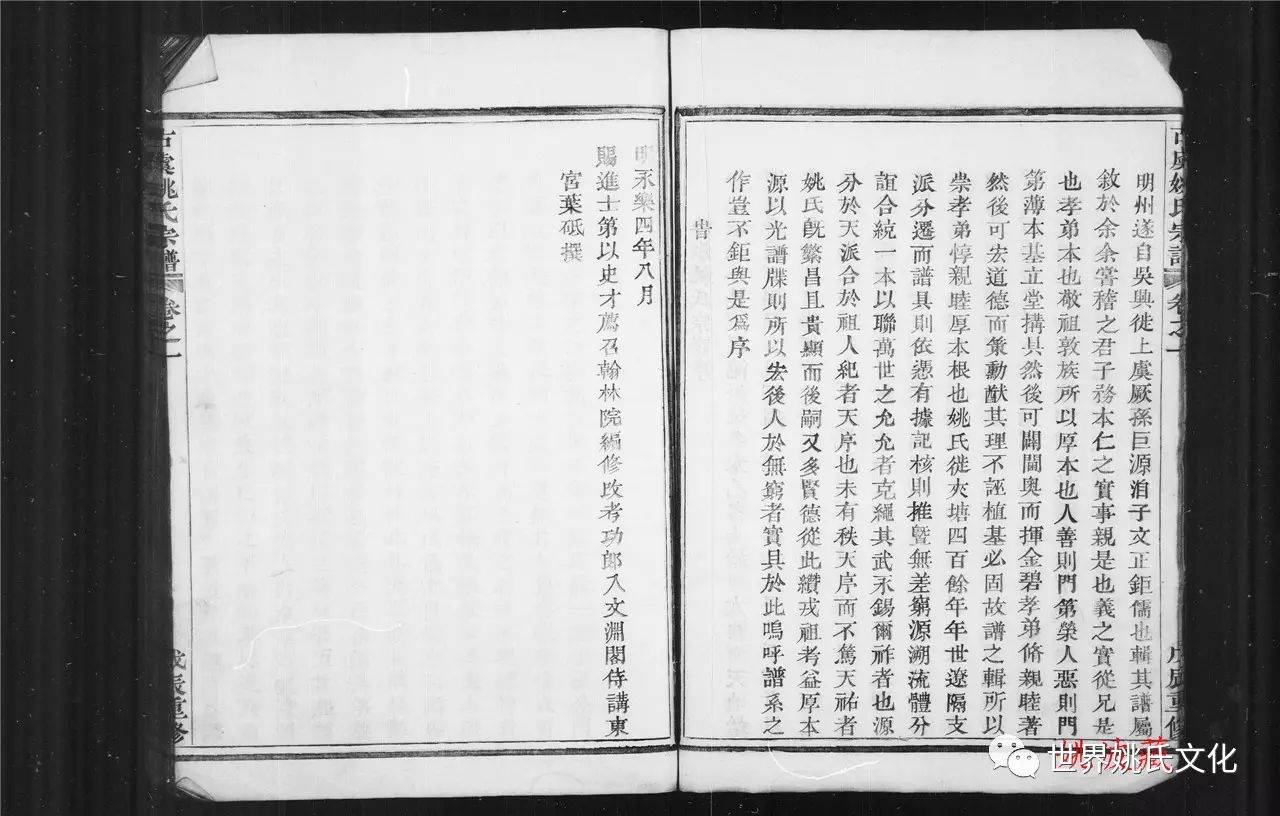 明州遂自吳興徙上虞厥孫巨源洎子文正鉅儒也輯其譜屬
敘於余余嘗稽之君子務本仁之實事親是也義之實從兄是
也孝弟本也敬祖敦族所以厚本也人善則門第榮人惡則門
第薄本基立堂搆具然後可闢閫奧而揮金碧孝弟脩親睦著
然後可宏道德而策勳猷其理不誣植基必固故譜之輯所以
崇孝弟惇親睦厚本根也姚氏徙夾塘四百餘年年世遼隔支
派分遷而譜具則依憑有據記核則推暨無差窮源溯流體分
誼合統一本以聯萬世之允允者克繩其武永錫爾祚者也源
分於天派合於祖人紀者天序也未有秩天序而不篤天祐者
姚氏旣繁昌且貴顯而後嗣又多賢德從此纘戎祖考益厚本
源以光譜牒則所以宏後人於無窮者實具於此嗚呼譜系之
作豈不鉅與是爲序
明永樂四年八月
賜進士第以史才薦召翰林院編修攺考功郎入文淵閣侍講東
宮葉砥撰
古虞姚氏宗譜
卷之一
戊辰重修
古虞姚氏宗譜
卷之一
戊辰重修
世界姚氏文化